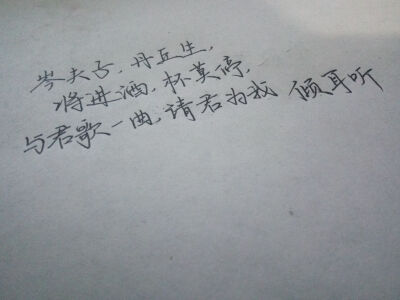 岑夫子,丹丘生,
将进酒,杯莫停,
与君歌一曲,请君为我 倾耳听